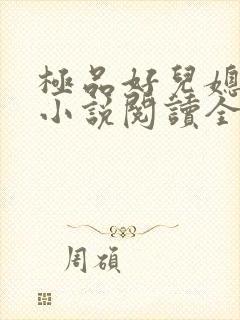 極品好兒媳
小說閱讀全
周碩